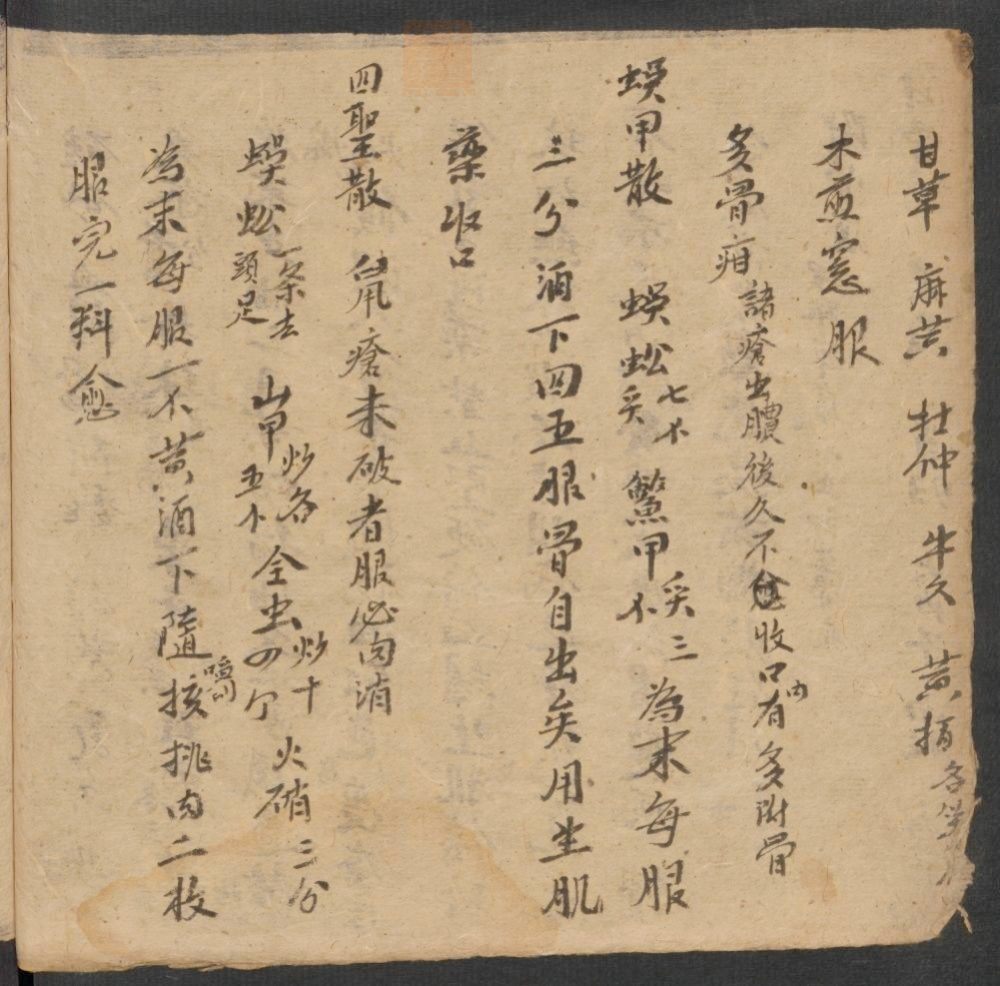 甘草 麻黄 杜仲 牛夕 黄柏各等
木煎窓服
多骨疽 諸瘡出膿後久不愈收口内有多附骨
蜈甲散 蜈蚣七个炙 鱉甲炙三个 為末每服
三分酒下四五服骨自出矣用生肌
藥收口
四聖散 鼠瘡未破者服必内消
蜈蚣一条去頭足 山甲炒各五个 全虫炒十四个 火硝三分
為末每服一个黄酒下隨核挑肉二枚
服完一料愈